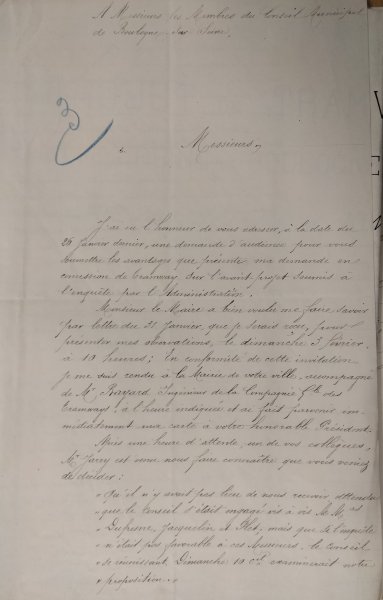 A Messieurs les Membres du Conseil Municipal
de Boulogne-sur-Seine,
Messieurs,
J'ai eu l'honneur de vous adresser, à la date du
26 Janvier dernier, une demande d'audience pour vous
soumettre les avantages que présente ma demande en
concession de tramway sur l'avant projet soumis à
l'enquête par l'Administration.
Monsieur le Maire a bien voulu me faire savoir
par lettre du 31 Janvier, que je serais reçu, pour
présenter mes observations, le dimanche 3 février
à 10 heures; En conformité de cette invitation
je me suis rendu à la Mairie de votre ville, accompagné
de Mr Bayard, Ingénieur de la Compagnie Gle des
Tramways, à l'heure indiquée et ai fait parvenir im-
médiatement ma carte à votre honorable Président.
Après une heure d'attente, un de vos collègues,
Mr est venu nous faire connaître que vous veniez
de décider:
"Qu'il n'y avait pas lieu de nous recevoir attendu
"que le Conseil s'était engagé vis à vis de MMrs
"Dufresne, Jacquelin & mais que si l'enquête
"n'était pas favorable à ces Messieurs, le Conseil
"se réunissant Dimanche 10 ct examinerait notre
"proposition."